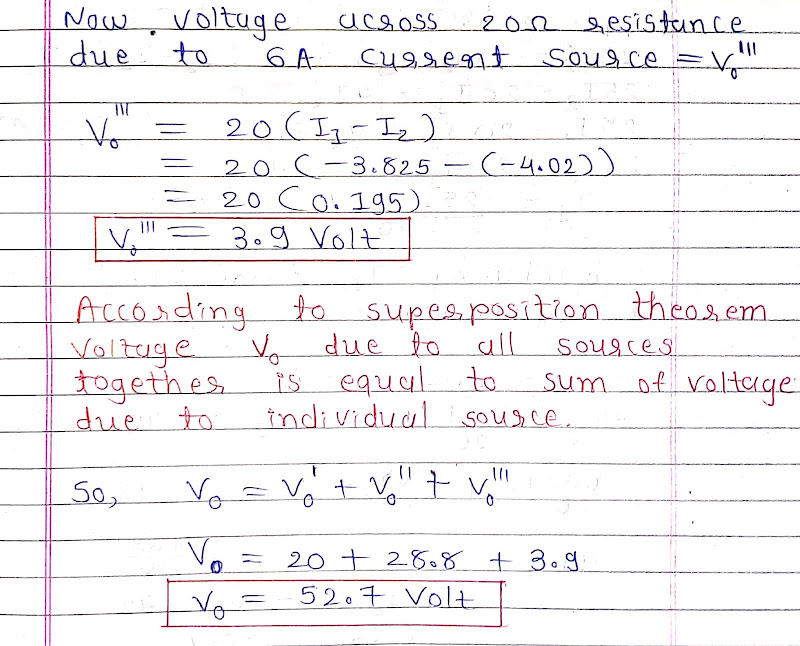 Now. voltage across 20Ω resistance
due to 6A current source = V₀'''
V₀''' = 20 (I₁ - I₂)
= 20 (-3.825 - (-4.02))
= 20 (0.195)
V₀''' = 3.9 Volt
According to superposition theorem
voltage V₀ due to all sources
together is equal to sum of voltage
due to individual source.
So, V₀ = V₀' + V₀'' + V₀'''
V₀ = 20 + 28.8 + 3.9
V₀ = 52.7 Volt